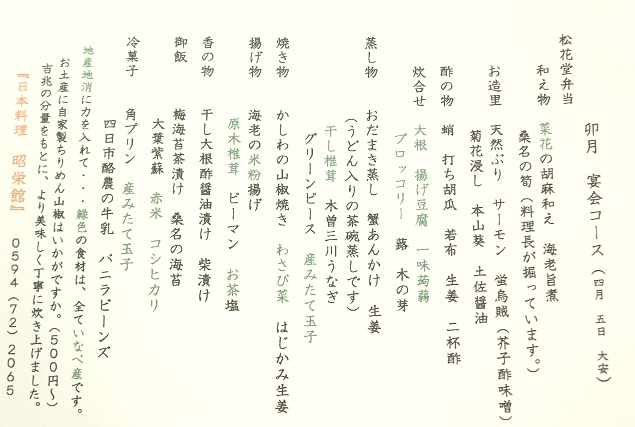 卯月　宴会コース（四月　五日　大安）
松花堂弁当
和え物　菜花の胡麻和え　海老旨煮
桑名の筍（料理長が掘っています。）
お造里　天然ぶり　サーモン　蛍烏賊（芥子酢味噌）
菊花浸し　本山葵　土佐醤油
酢の物　蛸　打ち胡瓜　若布　生姜　二杯酢
炊合せ　大根　揚げ豆腐　一味蒟蒻
ブロッコリー　蕗　木の芽
蒸し物　おだまき蒸し　蟹あんかけ　生姜
（うどん入りの茶碗蒸しです）
干し椎茸　木曽三川うなぎ
グリーンピース　産みたて玉子
焼き物　かしわの山椒焼き　わさび菜　はじかみ生姜
揚げ物　海老の米粉揚げ
原木椎茸　ピーマン　お茶塩
香の物　干し大根酢醤油漬け　柴漬け
御飯　梅海苔茶漬け　桑名の海苔
大葉紫蘇　赤米　コシヒカリ
冷菓子　角プリン　産みたて玉子
四日市酪農の牛乳　バニラビーンズ
地産地消に力を入れて・・緑色の食材は、全ていなべ産です。
お土産に自家製ちりめん山椒はいかがですか。（500円〜）
吉兆の分量をもとに、より美味しく丁寧に炊き上げました。
『日本料理　昭栄館』　0594（72）2065